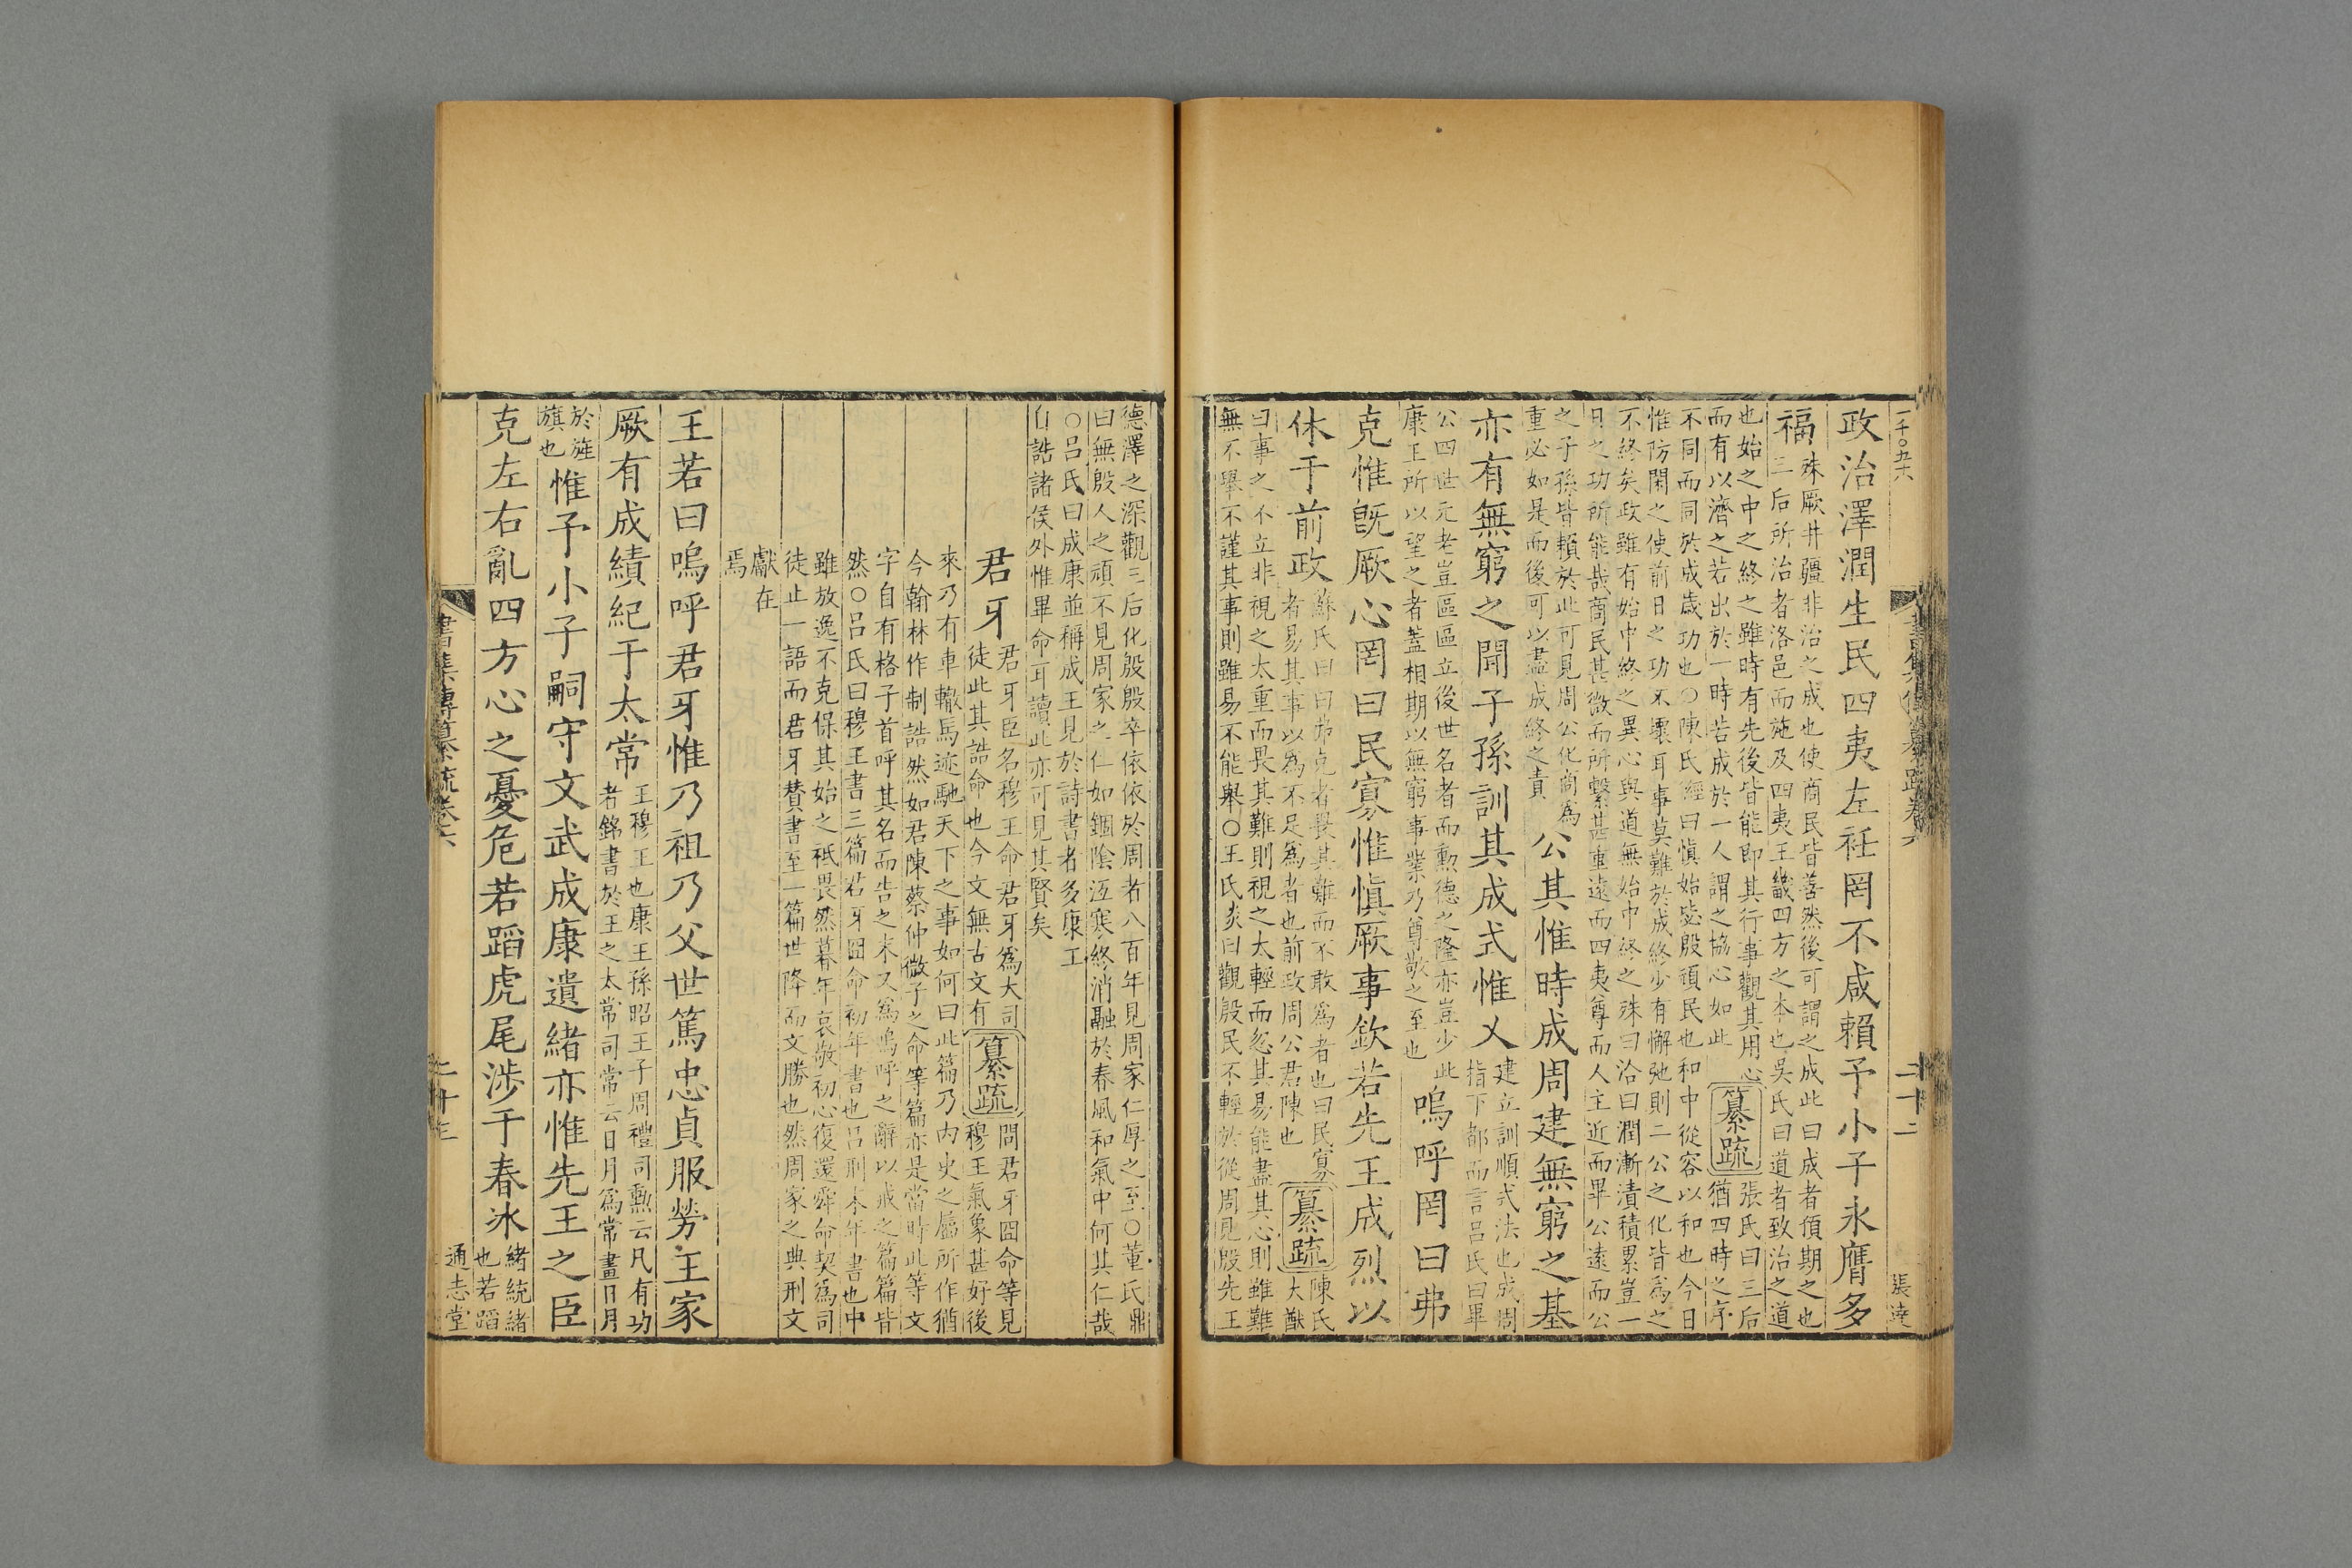 一千〇五十六
二十二
張達
政治澤潤生民四夷左衽罔不咸賴予小子永膺多
福
殊厥井疆非治之成也使商民皆善然後可謂之成此曰成者預期之也
三后所治者洛邑而施及四夷王畿四方之本也吳氏曰道者致治之道
也始之中之終之雖時有先後皆能即其行事觀其用心
而有以濟之若出於一時若成於一人謂之協心如此
纂疏
張氏曰三后
猶四時之序
不同而同於成歲功也○陳氏經曰愼始毖殷頑民也和中從容以和也今日
惟防閑之使前日之功不壞耳事莫難於成終少有懈弛則二公之化皆爲之
不終矣政雖有始中終之異心與道無始中終之殊曰洽曰潤漸漬積累豈一
日之功所能哉商民甚微而所繫甚重遠而四夷尊而人主近而畢公遠而公
之子孫皆賴於此可見周公化商爲
重必如是而後可以盡成終之責
公其惟時成周建無窮之基
亦有無窮之聞子孫訓其成式惟乂
建立訓順式法也成周
指下都而言呂氏曰畢
公四世元老豈區區立後世名者而勳德之隆亦豈少此
康王所以望之者蓋相期以無窮事業乃尊敬之至也
嗚呼罔曰弗
克惟旣厥心罔曰民寡惟愼厥事欽若先王成烈以
休于前政
蘇氏曰曰弗克者畏其難而不敢爲者也曰民寡
者易其事以爲不足爲者也前政周公君陳也
纂疏
陳氏
大猷
曰事之不立非視之太重而畏其難則視之太輕而忽其易能盡其心則雖難
無不舉不謹其事則雖易不能舉○王氏炎曰觀殷民不輕於從周見殷先王
德澤之深觀三后化殷殷卒依依於周者八百年見周家仁厚之至○董氏鼎
曰無殷人之頑不見周家之仁如錮陰沍寒終消融於春風和氣中何其仁哉
○呂氏曰成康並稱成王見於詩書者多康王
止誥諸侯外惟畢命耳讀此亦可見其賢矣
君牙
君牙臣名穆王命君牙爲大司
徒此其誥命也今文無古文有
纂疏
問君牙冏命等見
穆王氣象甚好後
來乃有車轍馬迹馳天下之事如何曰此篇乃內史之屬所作猶
今翰林作制誥然如君陳蔡仲微子之命等篇亦是當時此等文
字自有格子首呼其名而告之末又爲嗚呼之辭以戒之篇篇皆
然○呂氏曰穆王書三篇君牙冏命初年書也呂刑末年書也中
雖放逸不克保其始之祗畏然暮年哀敬初心復還舜命契爲司
徒止一語而君牙贊書至一篇世降而文勝也然周家之典刑文
獻在
焉
王若曰嗚呼君牙惟乃祖乃父世篤忠貞服勞王家
厥有成績紀于太常
王穆王也康王孫昭王子周禮司勲云凡有功
者銘書於王之太常司常云日月爲常畫日月
於旌
旗也
惟予小子嗣守文武成康遺緒亦惟先王之臣
克左右亂四方心之憂危若蹈虎尾涉于春冰
緒統緒
也若蹈
書集傳纂疏卷六
二十三
通志堂